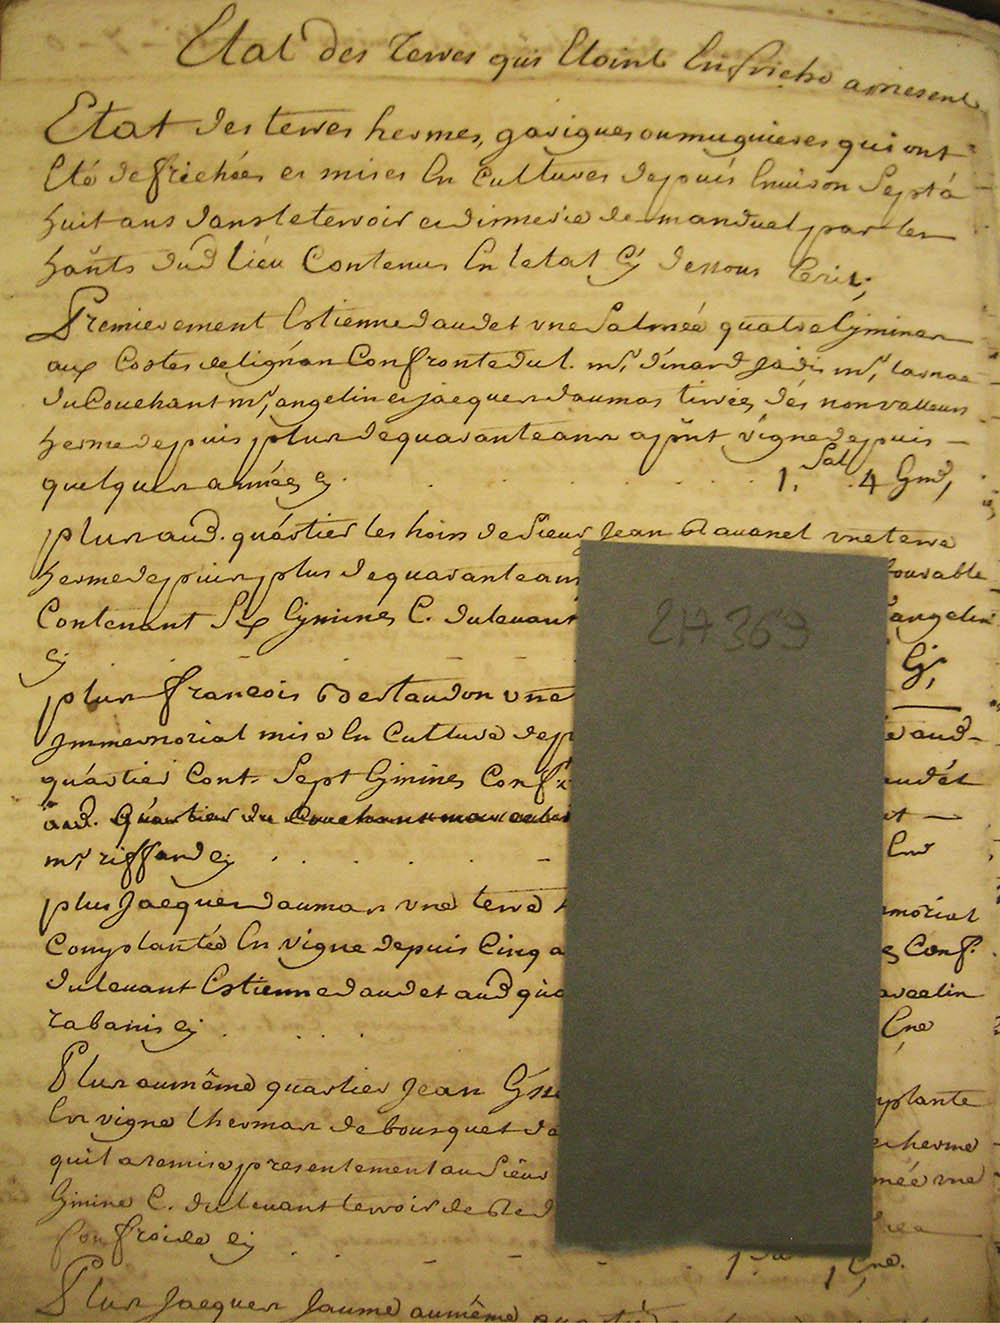 Etat des terres qui Etoint En friche apresent
Etat des terres hermes, garigues ou muguieres qui ont
Eté defrichées et mises En Cultures depuis Environ Sept à
huit ans dans le terroir et dixmerie de manduel par les
hañts dud lieu Contenus En letat Cy dessous Ecrit,
Premierement Estienne daudet une Salmée quatre Eymines
aux Costes de lignan Confronte du l. mr, dinard Jadis mr,
du Couchant mr, angelin et jacques daumas tirrée des nonvalleurs
herme depuis plus de quarante ans apñt vigne depuis
quelques années Cy . . . . . . 1. Sal .4 Emd,
plus aud. quartier les hoirs de Sieur Jean Ravanel une terre
herme depuis plus de quarante ans bourable
Contenant Six Eymines C. du levant angelin
Cy E,
plus françois Bertaudon une
Jmmemorial mise En Culture dep aud
quartier Cont. Sept Eymines Conft audet
aud. Quartier du Couchant
mr, riffard Cy . . . . Emd
plus Jacques daumas une terre mmorial
Complantée En vigne depuis Cinq a Conf.
du levant Estienne daudet aud qua avcelin
rabanis Cy . . . Eme
Plus au même quartier Jean mplante
En vigne l hermas de bousquet de herme
quil a remis presentement au Sieur mée une
Eymine C. du levant terroir de Red
fonfroide Cy . . . 1 Sal 1, Eme.
Plus Jacques Jaume au même quartier
2H 369